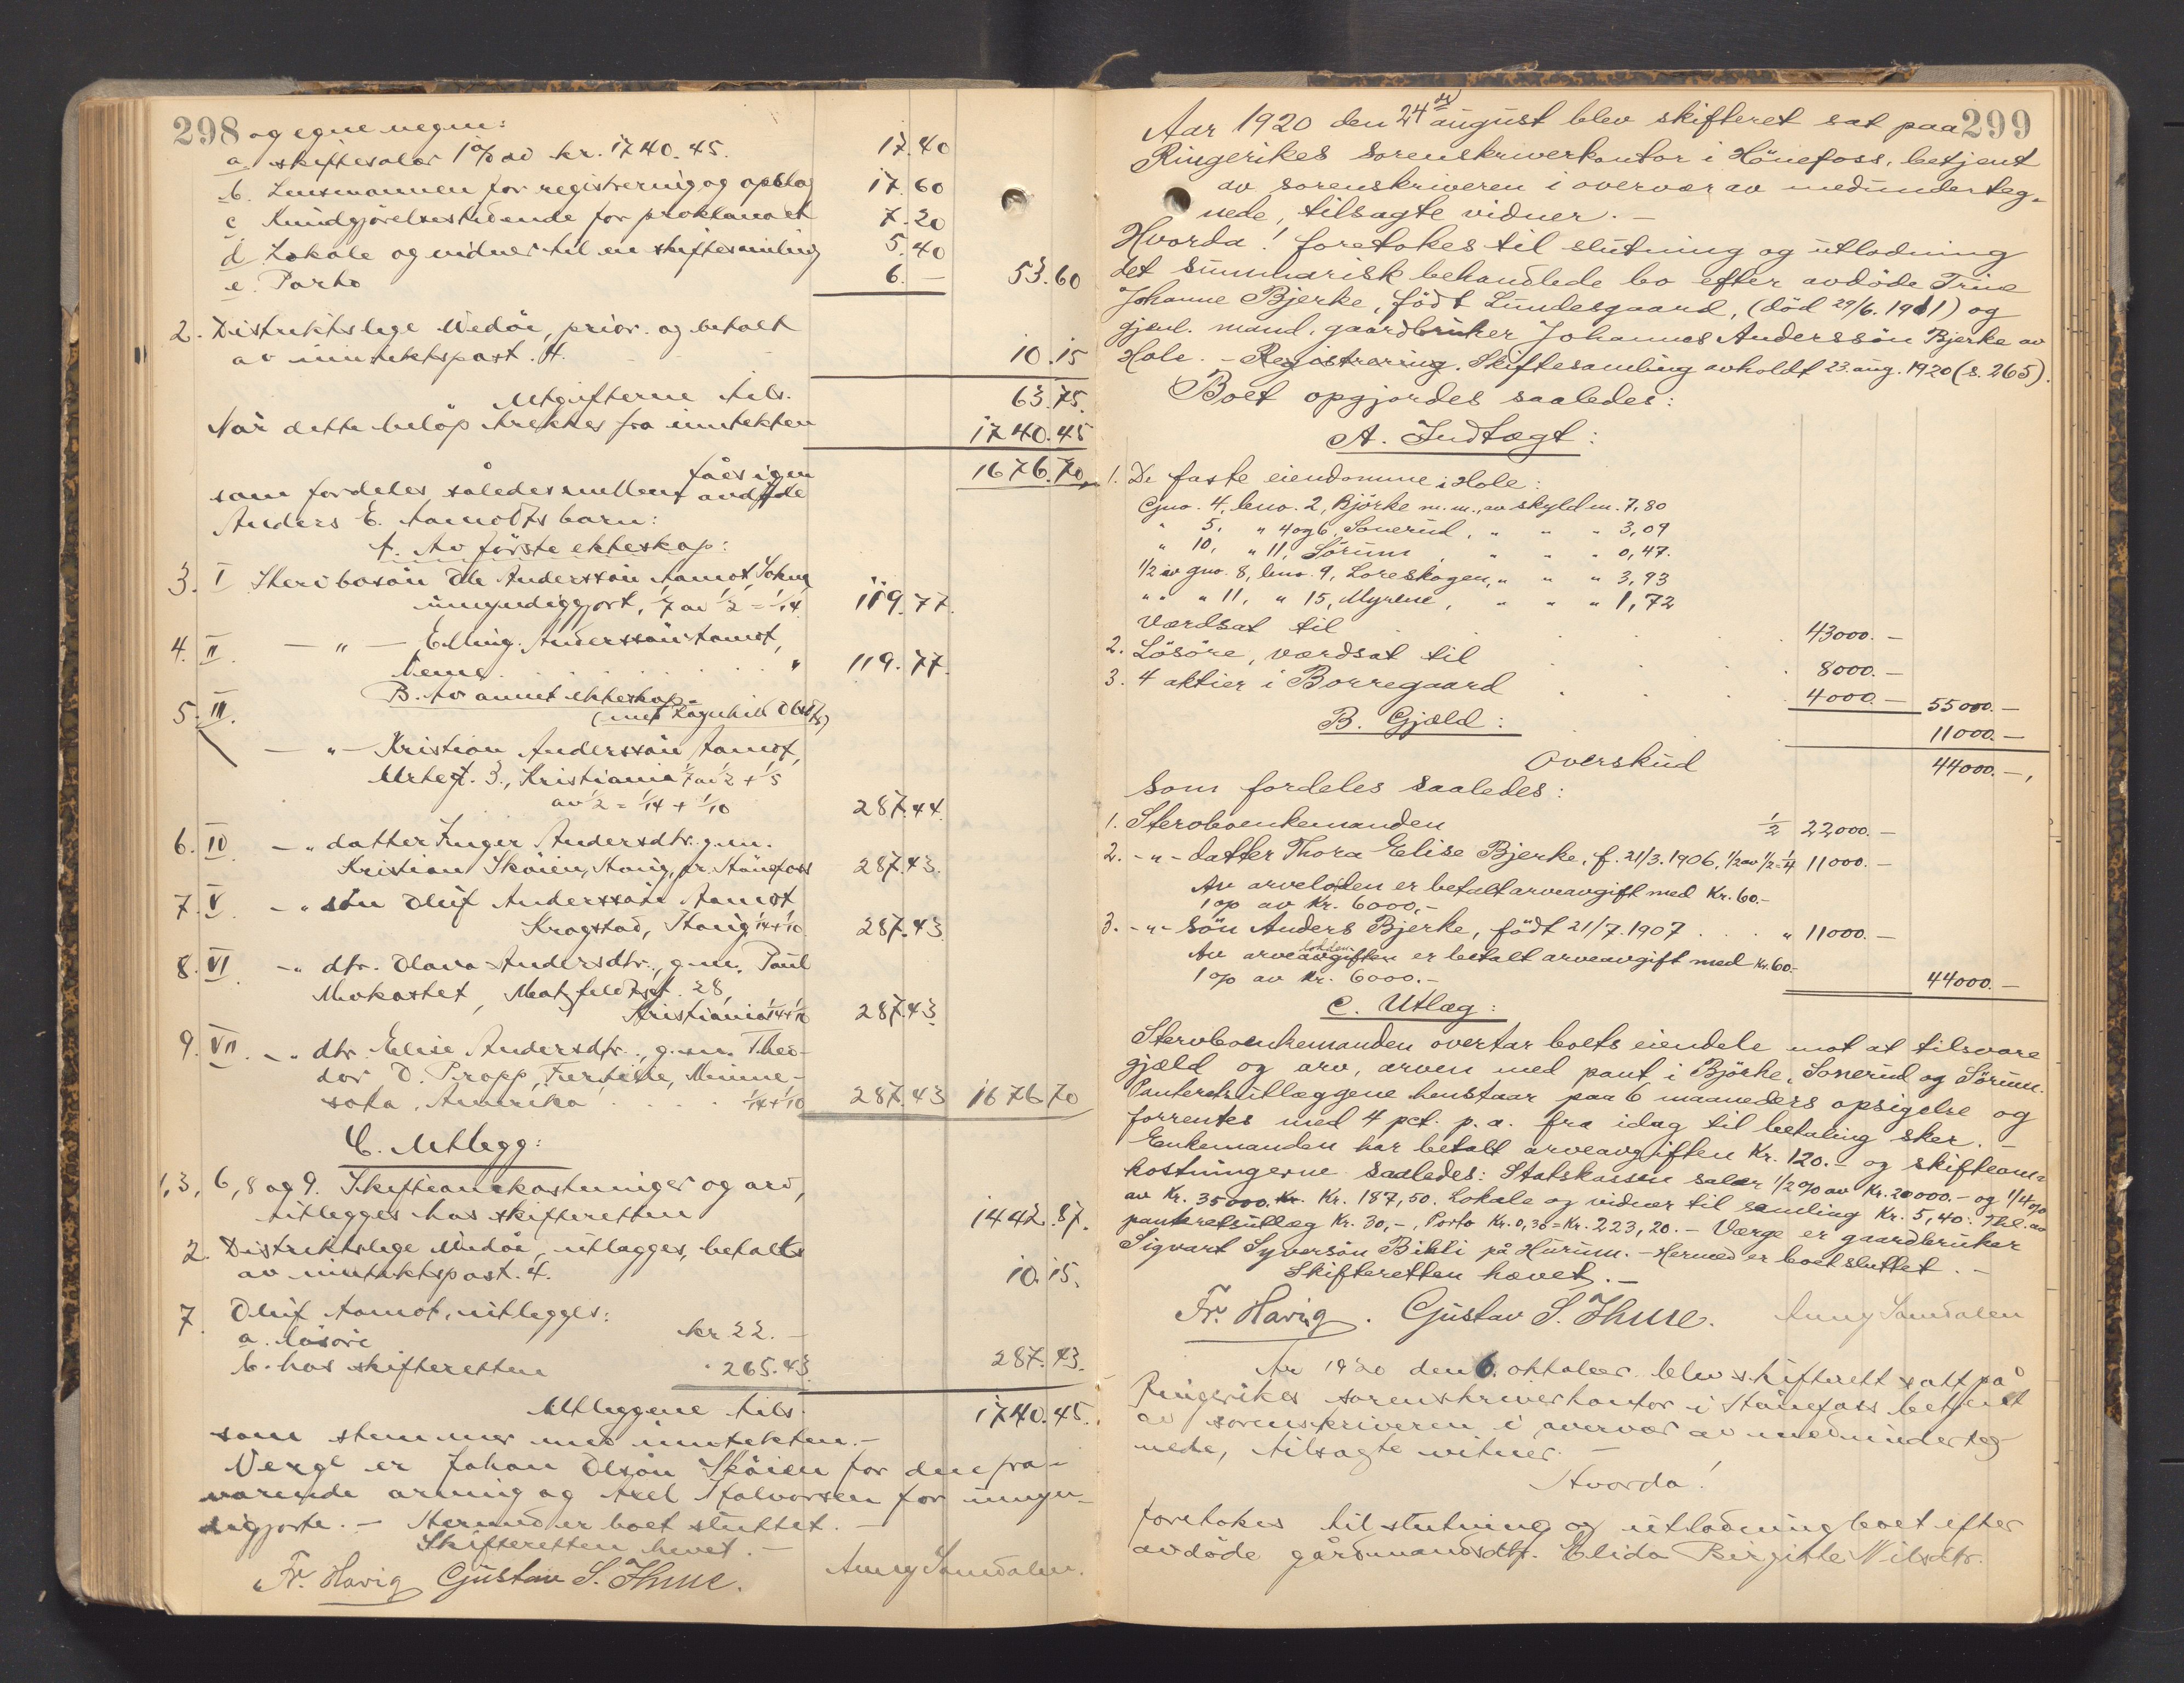 298 og egne negne:
a skiftesalær 1% av kr. 1740.45. 17.40
b. Lensmannen for registrering og opslag 17.60
c Kundgjørelsestidende for proklamaet 7.20
d Lokale og vidner til en skiftesamling 5.40
e. Porto 6.— 53.60
2. Distriktslege Wedøe, prior. og betalt
av inntektspost. 4. 10.15
Utgifterne tils. 63.75.
Når dette beløp trekkes fra inntekten 1740.45
fåes igjen 1676.70
som fordeles således mellem avdøde
Anders E. Aamodts barn:
A. Av første ekteskap:
3. I Stervbosøn Ole Anderssøn Aamot, Sokna
umyndiggjort, 1/7 av 1/2 = 1/14 119.77.
4. II. — " — Elling Anderssøn Aamot,
" 119.77.
B. Av annet ekteskap
5. III. (med Ragnhild Olsdtr)
— " — Kristian Anderssøn Aamot,
Urtegt. 3., Kristiania 1/7 av 1/2 + 1/5
av 1/2 = 1/14 + 1/10 287.44.
6. IV — " datter Inger Andersdtr. g.m.
Kristian Skøien, Haug, pr. Hønefoss 287.43.
7. V. — " søn Oluf Anderssøn Aamot
Kragstad, Haug 1/14+1/10 287.43
8. VI — " dtr. Olava Andersdtr., g.m. Paul
Mokastet, Metzfeldtsgt. 28,
Kristiania 1/14+1/10 287.43
9. VII — " dtr. Elise Andersdtr., g.m. Theo-
dor O. Propp, Fertile, Minne-
sota, Amerika . . . 1/14+1/10 287.43 1676.70
C. Utlegg:
1,3, 6, 8 og 9. Skifteomkostninger og arv,
utlegges hos skifteretten 1442.87.
2. Distriktslege Wedøe, utlegges, betalt
av inntektspost. 4. 10.15.
7. Oluf Aamot, utlegges:
a. løsøre kr. 22.—
b. hos skifteretten " 265.43. 287.43.
Utleggene tils. 1740.45.
som stemmer med inntekten.—
Verge er Johan Olsøn Skøien for den fra-
værende arving og Axel Halvorsen for umyn-
diggjorte. — Hermed er boet sluttet. —
Skifteretten hevet. —
Fr. Havig Gustav S. Thue. Anny Samdalen.
Aar 1920 den 24de august blev skifteret sat paa 299
Ringerikes sorenskriverkontor i Hönefoss, betjent
av sorenskriveren i overvær av medunderteg-
nede, tilsagte vidner. —
Hvorda! foretokes til slutning og utlodning
det summarisk behandlede bo efter avdöde Trine
Johanne Bjerke, född Lundesgaard, (död 29/6. 1911) og
gjenl. mand, gaardbruker Johannes Anderssön Bjerke av
Hole. – Registrering. Skiftesamling avholdt 23. aug. 1920 (s. 265).
Boet opgjordes saaledes:
A. Indtægt:
1. De faste eiendomme i Hole:
Gno. 4, bno. 2, Björke m. m., av skyld m. 7,80
" 5, " 4 og 6, Sonerud, " " " 3,09
" 10, " 11, Sörum, " " " 0,47.
1/2 av gno. 8, bno. 9, Loreskogen, " " " 3,93
" " " 11, " 15, Myrene, " " " 1,72
Værdsat til 43000.—
2. Lösöre, værdsat til 8000.—
3. 4 aktier i Borregaard 4000.— 55000.—
B. Gjæld: 11000.—
Overskud 44000.—,
som fordeles saaledes:
1. Stervboenkemanden 1/2 22000.—
2. - " - datter Thora Elise Bjerke, f. 21/3. 1906, 1/2 av 1/2=1/4 11000.—
Av arvelodden er betalt arveavgift med Kr. 60.—
1 % av Kr. 6000,—
3. - " - sön Anders Bjerke, född 21/7. 1907 . . . " 11000.—
Av arveavgiften lodden er betalt arveavgift med Kr. 60.—
1 % av Kr. 6000.— 44000.—
C. Utlæg:
Stervboenkemanden overtar boets eiendele mot at tilsvare
gjæld og arv, arven med pant i Björke, Sonerud og Sörum.
Panteretsutlæggene henstaar paa 6 maaneders opsigelse og
forrentes med 4 pct. p. a. fra idag til betaling sker. —
Enkemanden har betalt arveavgiften Kr. 120.— og skifteom-
kostningerne saaledes: Statskassen salær 1/2 % av Kr. 20000.— og 1/4 %
av Kr. 35000. Kr. Kr. 187,50. Lokale og vidner til samling Kr. 5,40. Thl. av
panteretsutlæg Kr. 30,—, Porto Kr. 0,30 = Kr. 223,20. — Værge er gaardbruker
Sigvart Syversön Bihli på Hurum. — Hermed er boet sluttet. —
Skifteretten hævet. —
Fr. Havig. Gustav S. Thue. Anny Samdalen
År 1920 den 6. oktober blev skifterett satt på
Ringerikes sorenskriverkontor i Hønefoss betjent
av sorenskriveren i overvær av medunderteg-
nede, tilsagte vitner. —
Hvorda!
foretokes til slutning og utlodning boet efter
avdøde gårdmandsdtr. Elida Birgitte Nilsdtr.